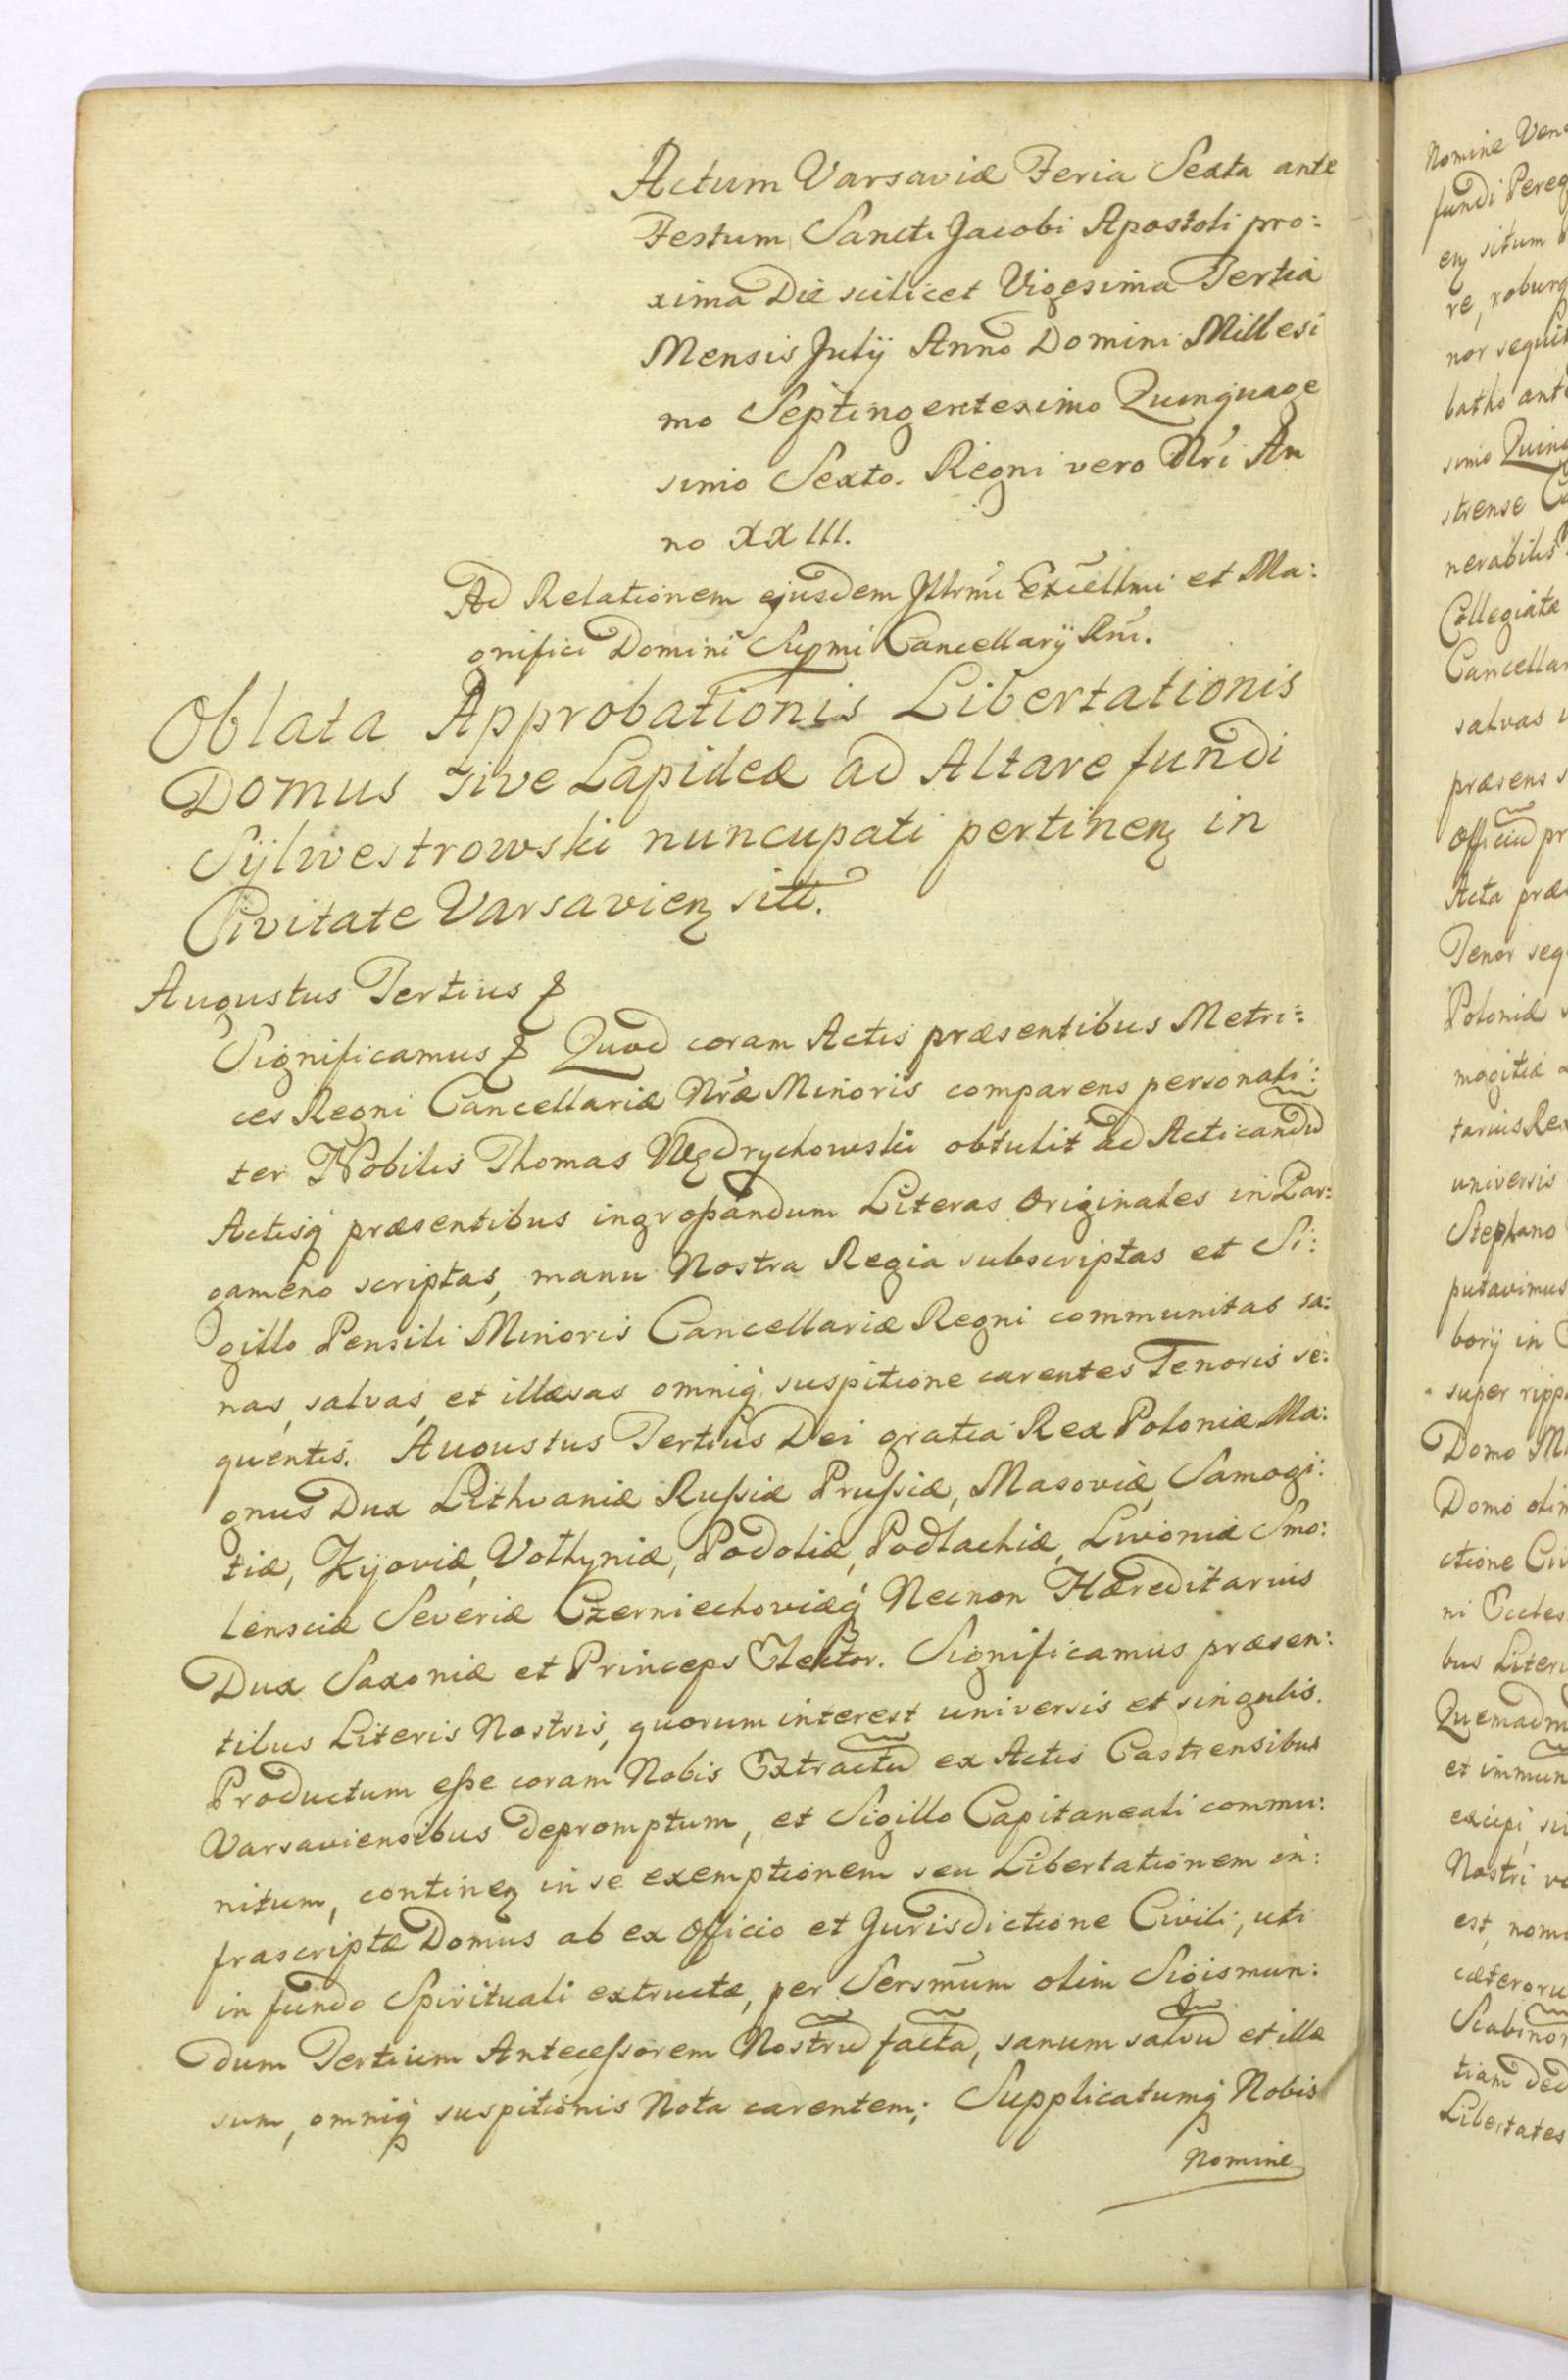 Actum Varsaviæ Feria Sexta ante
Festum Sancti Jacobi Apostoli pro:
xima Die scilicet Vigesima Tertia
Mensis Julij Anno Domini Millesi
mo Septingentesimo Quinquage
simo Sexto. Regni vero Nri An
no XXIII.
Ad Relationem ejusdem Illrmi Excellmi et Ma:
gnifici Domini Supmi Cancellarij Rni.
Oblata Approbationis Libertationis
Domus sive Lapideæ ad Altare fundi
Sylwestrowski nuncupati pertinen in
Civitate Varsavien sitt.
Augustus Tertius &
Significamus & Quod coram Actis præsentibus Metri:
ces Regni Cancellariæ Nræ Minoris comparens personali:
ter Nobilis Thomas Wędrychowski obtulit ad Acticandũ
Actisq præsentibus ingroßandum Literas Originales in Par:
gameno scriptas, manu Nostra Regia subscriptas et Si:
gillo Pensili Minoris Cancellariæ Regni communitas sa:
nas, salvas, et illæsas omniq suspitione carentes Tenoris se:
quentis. Augustus Tertius Dei gratia Rex Poloniæ Ma:
gnus Dux Lithvaniæ Rußiæ Prußiæ, Masoviæ, Samogi:
tiæ, Kijoviæ, Volhyniæ, Podoliæ, Podlachiæ, Livoniæ Smo:
lensciæ Severiæ Czerniechoviæq Necnon Hæreditarius
Dux Saxoniæ et Princeps Elektor. Significamus præsen:
tibus Literis Nostris, quorum interest universis et singulis.
Productum eße coram Nobis Extractũ ex Actis Castrensibus
Varsaviensibus depromptum, et Sigillo Capitaneali commu:
nitum, continen in se exemptionem seu Libertationem in:
frascriptæ Domus ab ex Officio et Jurisdictione Civili, uti
in fundo Spirituali extructæ, per Sersmum olim Sigismun:
dum Tertium Anteceßorem Nostrũ factã, sanum salvũ et illæ
sum, omniq suspitionis Nota carentem; Supplicatumq Nobis
Nomine
Nomine Ven
fundi Pereg
en situm
re, robur
nor sequi
batho ant
simo Quin
strense Ca
nerabilis
Collegiatæ
Cancellar
salvas
præsens s
Officiũ pr
Acta præ
Tenor seq
Poloniæ
mogitiæ
tarius Rex
universis
Stephano
putavimus
borij in
super ripp
Domo
Domo olim
ctione Civ
ni Eccles
bus Liter
Quemadm
et immun
excipi, su
Nostri
est, nom
cæteroru
Scabinor
tiam ded
Libertates